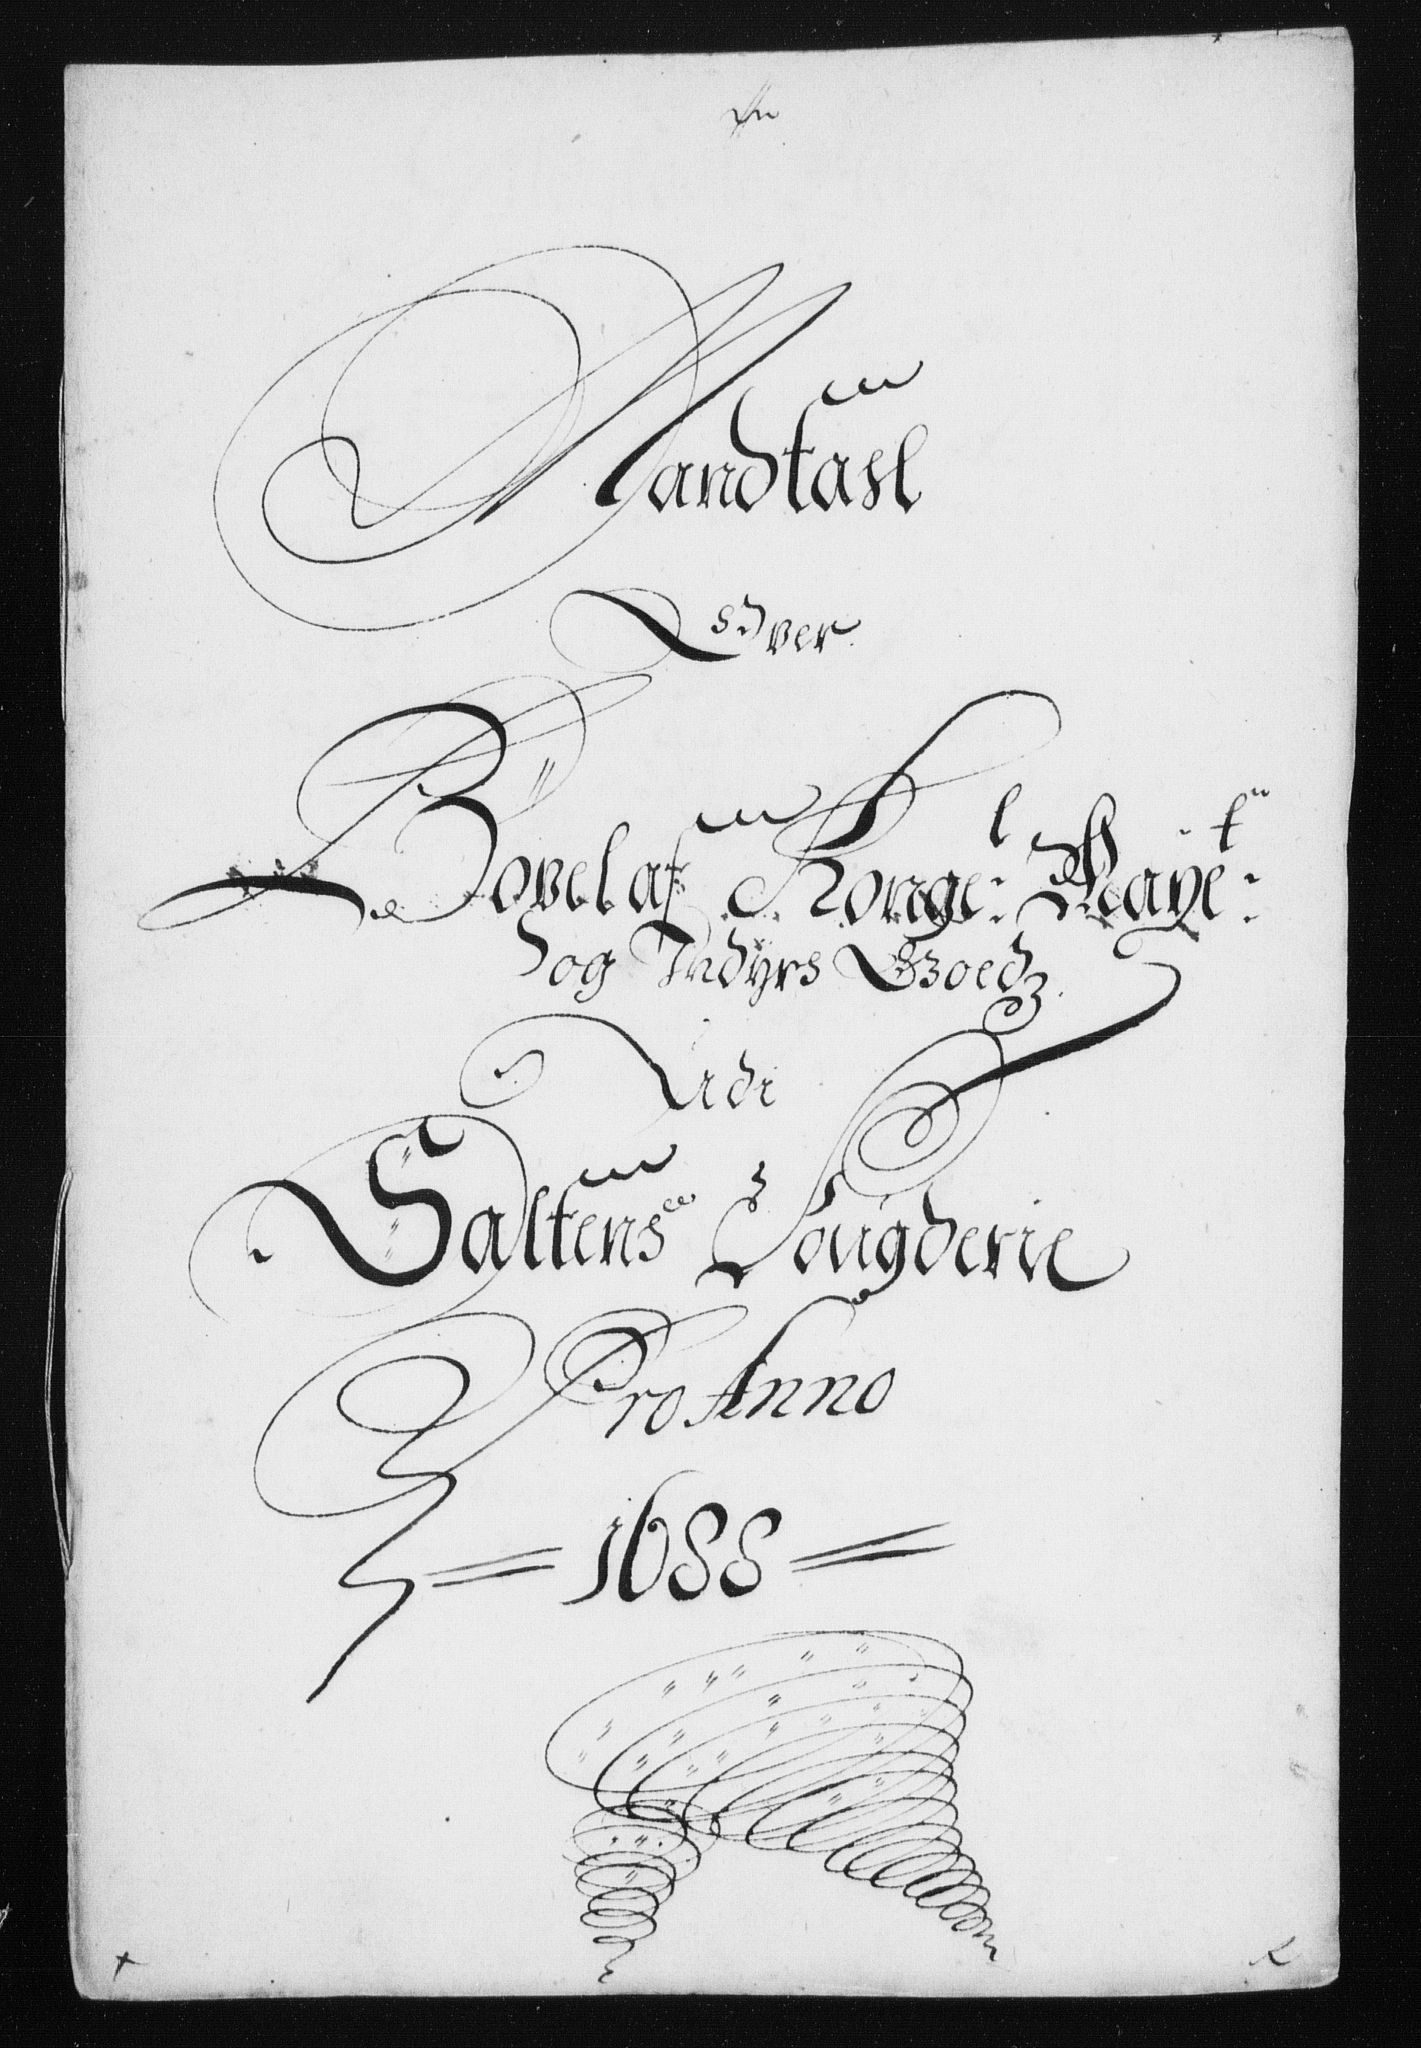 Mandtall
Over
Bövel af Konge: l Maÿe: tz
og Andyrs Goedz
Udi
Saltens Fougderie
Pro Anno
1688